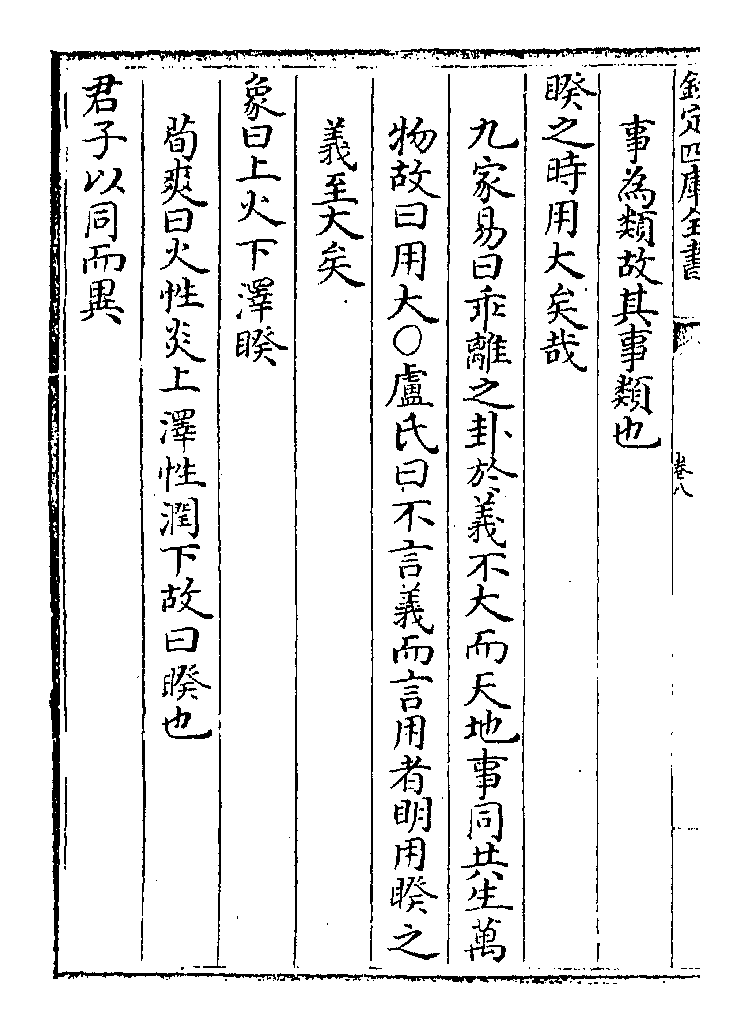 欽定四庫全書
卷八
事為類故其事類也
睽之時用大矣哉
九家易曰乖離之卦於義不大而天地事同共生萬
物故曰用大〇盧氏曰不言義而言用者明用睽之
義至大矣
象曰上火下澤睽
荀爽曰火性炎上澤性潤下故曰睽也
君子以同而異